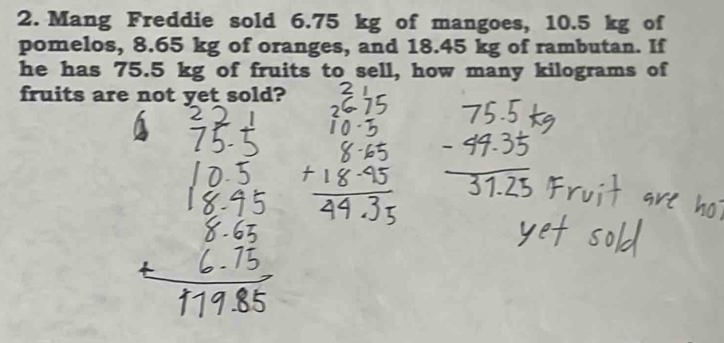 2. Mang Freddie sold 6.75 kg of mangoes, 10.5 kg of
pomelos, 8.65 kg of oranges, and 18.45 kg of rambutan. If
he has 75.5 kg of fruits to sell, how many kilograms of
fruits are not yet sold?
2 2 1
75.5
10.5
18.45
8.65
+ 6.75
119.85
2 1
6.75
10.5
8.65
+ 18.45
44.35
75.5 kg
- 44.35
31.25 Fruit are not
yet sold